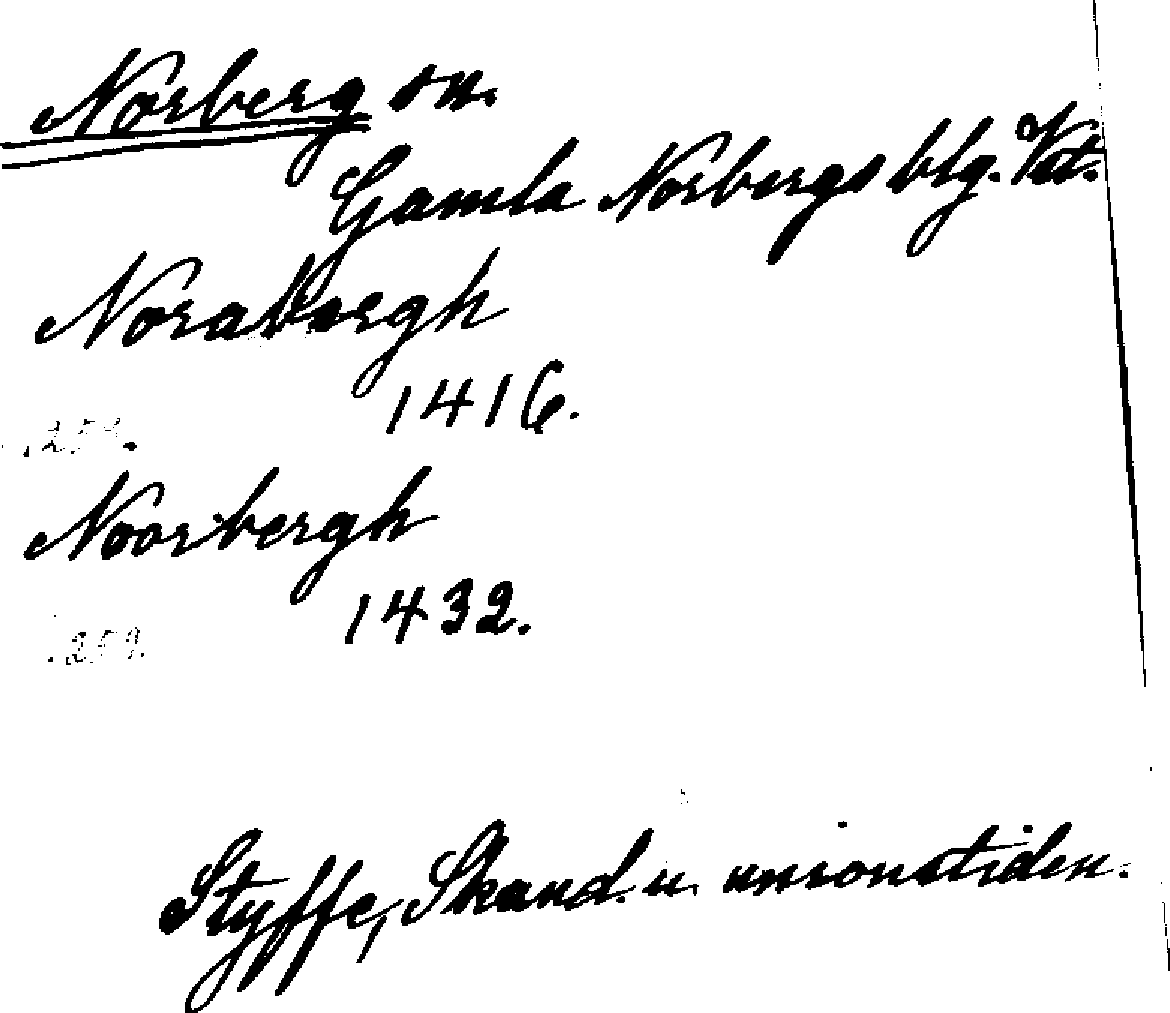 Norberg sn.
Gamla Norbergs blg. Vstm.
Noraborgh
1416.
.259.
Noorbergh
1432.
.259.
Styffe, Skand. u. unionstiden.